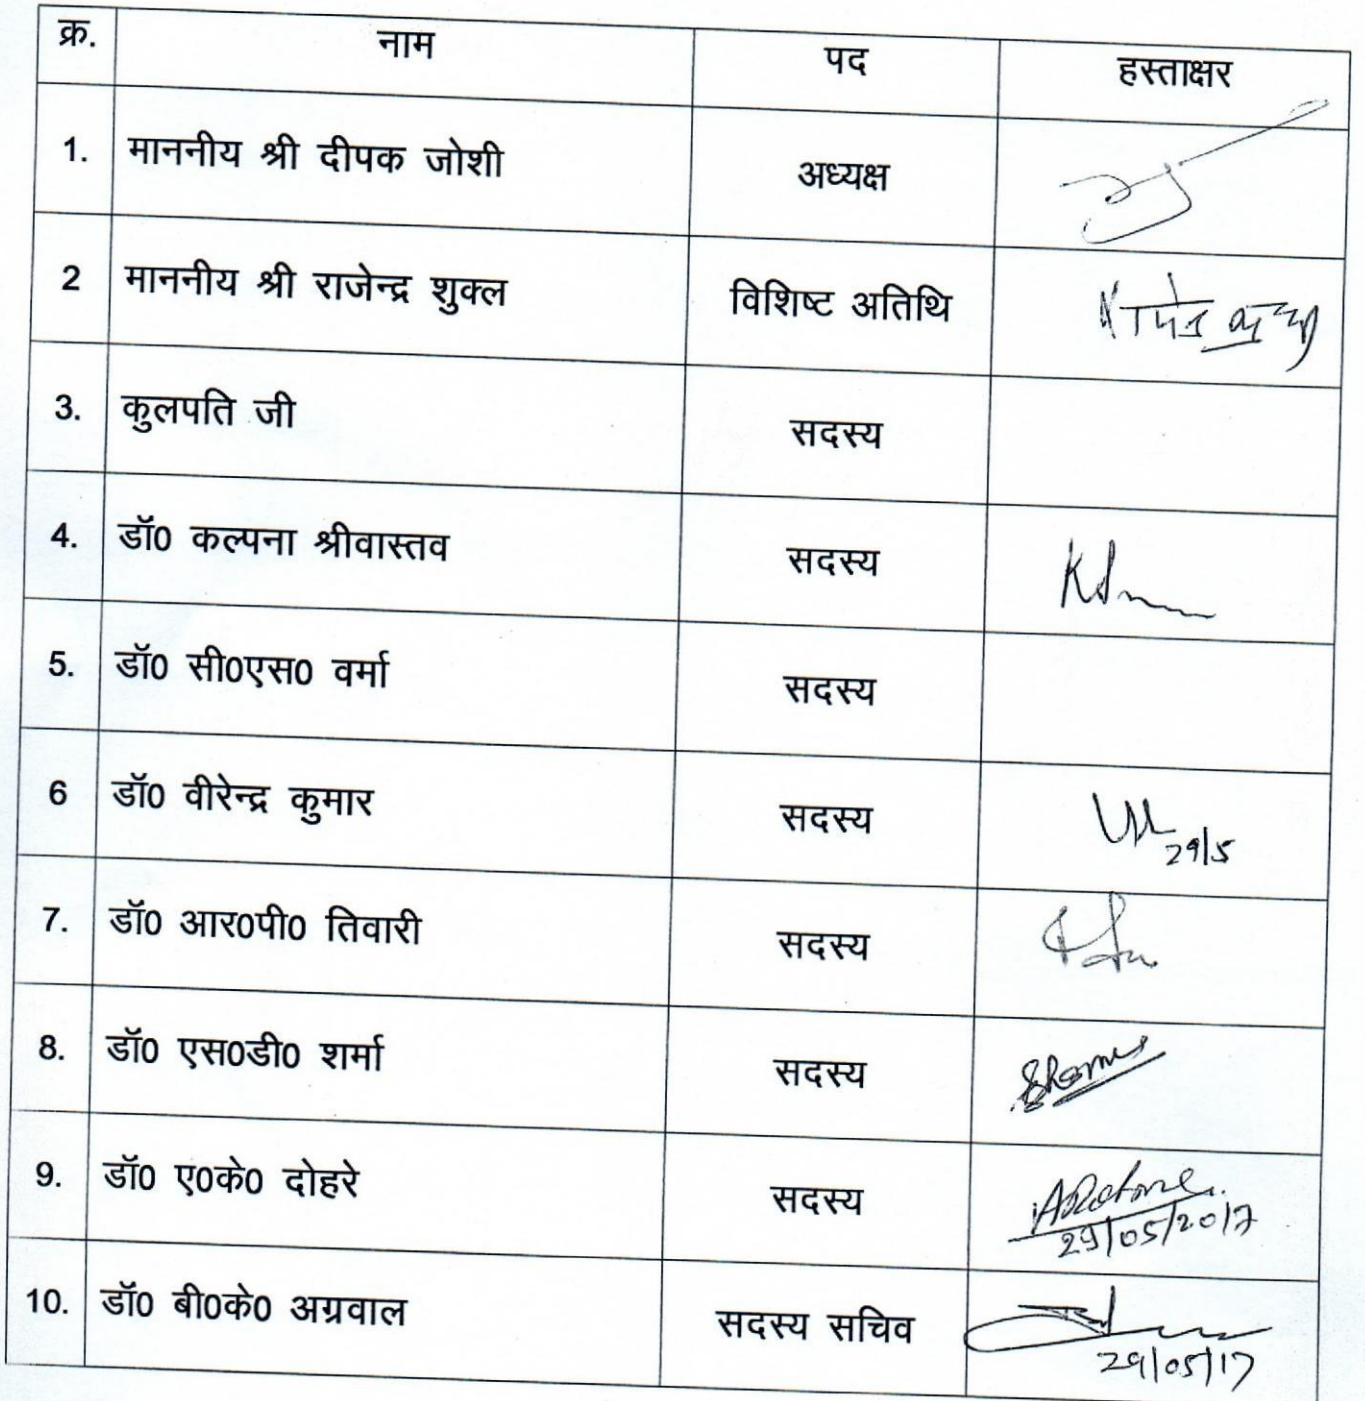 क्र. नाम पद हस्ताक्षर
1. माननीय श्री दीपक जोशी अध्यक्ष
2 माननीय श्री राजेन्द्र शुक्ल विशिष्ट अतिथि
3. कुलपति जी सदस्य
4. डॉ0 कल्पना श्रीवास्तव सदस्य
5. डॉ0 सी0एस0 वर्मा सदस्य
6 डॉ0 वीरेन्द्र कुमार सदस्य
29/5
7. डॉ0 आर0पी0 तिवारी सदस्य
8. डॉ0 एस0डी0 शर्मा सदस्य
9. डॉ0 ए0के0 दोहरे सदस्य
29/05/2017
10. डॉ0 बी0के0 अग्रवाल सदस्य सचिव
29/05/17